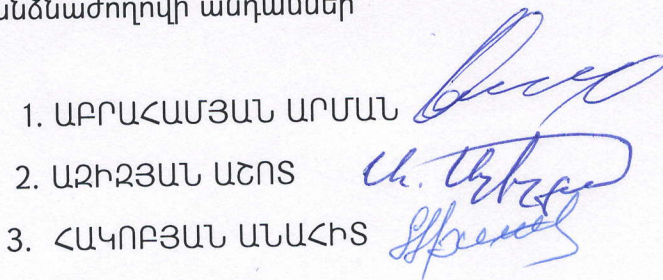 անձնաժողովի անդամներ
1. ԱԲՐԱՀԱՄՅԱՆ ԱՐՄԱՆ
2. ԱԶԻԶՅԱՆ ԱՇՈՏ
3. ՀԱԿՈԲՅԱՆ ԱՆԱՀԻՏ